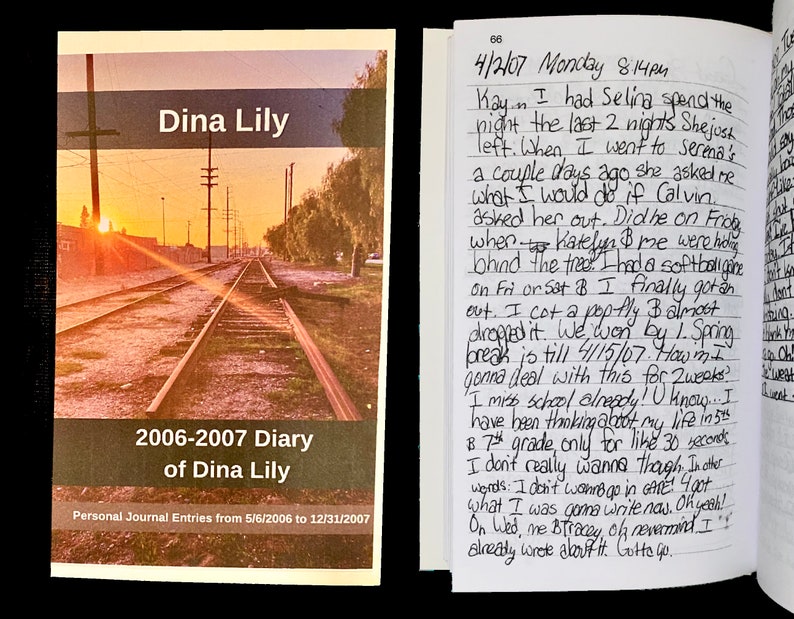 Dina Lily
2006-2007 Diary
of Dina Lily
Personal Journal Entries from 5/6/2006 to 12/31/2007
66
4/2/07 Monday 8:14pm
Kay... I had Selina spend the
night the last 2 nights. She just
left. When I went to Serena's
a couple days ago she asked me
what I would do if Calvin
asked her out. Did he on Friday
when Katelyn & me were hiding
bhind the tree? I had a softball game
on Fri or Sat & I finally got an
out. I cot a pop fly & almost
dropped it. We won by 1. Spring
break is till 4/15/07. How m I
gonna deal with this for 2 weeks?
I miss school already! U know... I
have been thinking aboot my life in 5th
& 7th grade, only for like 30 seconds
I don't really wanna though. In other
words: I don't wanna go in GATE! 4got
what I was gonna write now. Oh yeah!
On Wed, me & Tracey, oh nevermind. I
already wrote about it. Gotta Go.